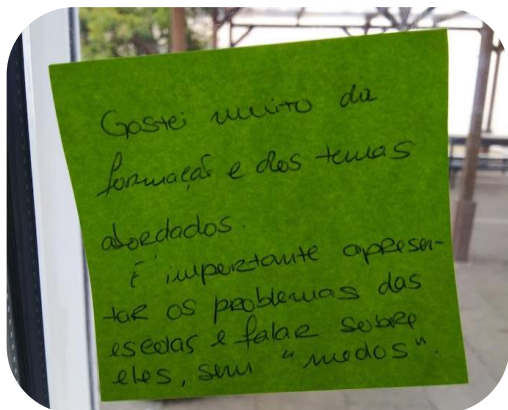 Gostei muito da
formação e dos temas
abordados.
É importante apresen-
tar os problemas das
escolas e falar sobre
eles, sem "medos".